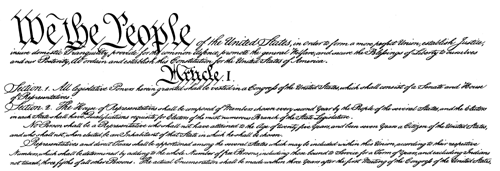 We the People of the United States, in order to form a more perfect Union, establish Justice,
insure domestic Tranquility, provide for the common defence, promote the general Welfare, and secure the Blessings of Liberty to ourselves
and our Posterity, do ordain and establish this Constitution for the United States of America.
Article I.
Section 1. All legislative Powers herein granted shall be vested in a Congress of the United States, which shall consist of a Senate and House
of Representatives.
Section 2. The House of Representatives shall be composed of Members chosen every second Year by the People of the several States, and the Electors
in each State shall have Qualifications requisite for Electors of the most numerous Branch of the State Legislature.
No Person shall be a Representative who shall not have attained to the Age of twenty five Years, and been seven Years a Citizen of the United States,
and who shall not, when elected, be an Inhabitant of that State in which he shall be chosen.
Representatives and direct Taxes shall be apportioned among the several States which may be included within this Union, according to their respective
Numbers, which shall be determined by adding to the whole Number of free Persons, including those bound to Service for a Term of Years, and excluding Indians
not taxed, three fifths of all other Persons. The actual Enumeration shall be made within three Years after the first Meeting of the Congress of the United States,